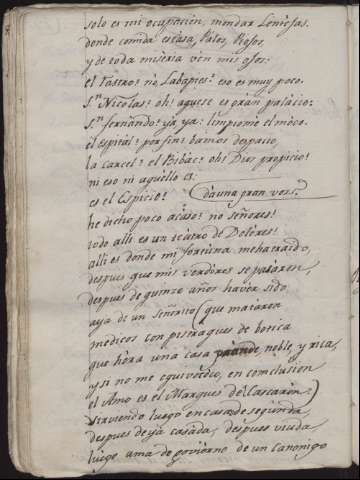 solo es mi ocupacion, mondar Lentejas.
donde comida escasa, Palos, Piojos,
y de toda miseria ven mis ojos:
el rastro? no, Labapies? eso es muy poco.
Sn. Nicolas? oh! aquese es gran palacio:
Sn. fernando? ya, ya: limpiome el moco.
el espital? por fin? bamos despacio,
la Carcel? el Bibac? oh! Dios propicio!
ni eso ni aquello es
es el Ospicio! (da una gran voz.)
he dicho poco acaso? no señores!
todo alli es un teatro de Dolores!
alli es donde mi fortuna me ha traido,
despues que mis verdores se pasaron,
despues de quinze años haver sido
aya de un señorito (que mataron
medicos con pistraques de botica
que hera una casa grande, noble, y rica,
y si no me equivocuo, en comclusion
el Amo es el Marques de Cascaron.)
sirviendo luego en casa de segunda,
despues de ya casada, despues viuda,
luego ama de govierno de un Canonigo